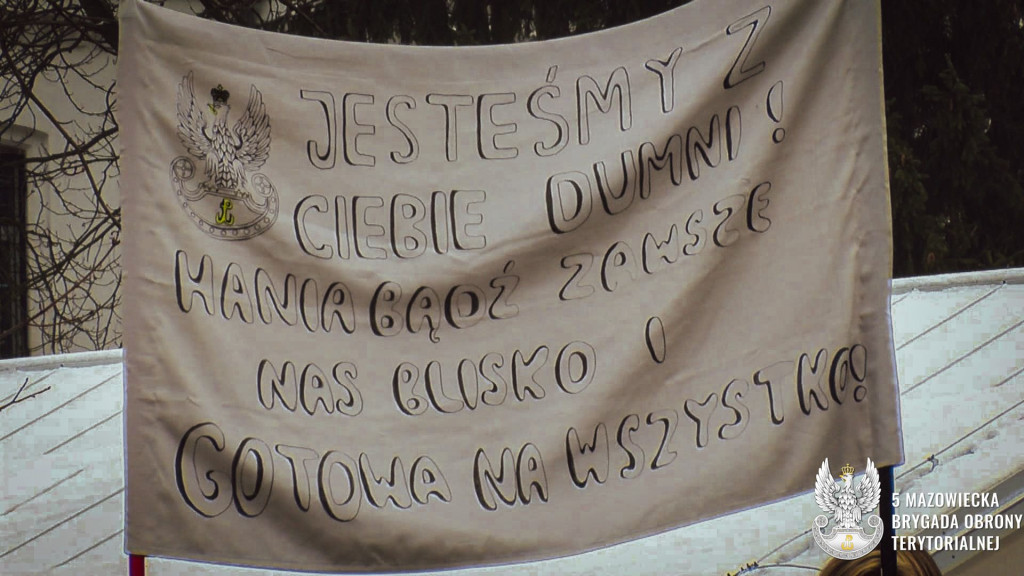 JESTEŚMY Z
CIEBIE DUMNI!
HANIA BĄDŹ ZAWSZE
NAS BLISKO I
GOTOWA NA WSZYSTKO!
5 MAZOWIECKA
BRYGADA OBRONY
TERYTORIALNEJ